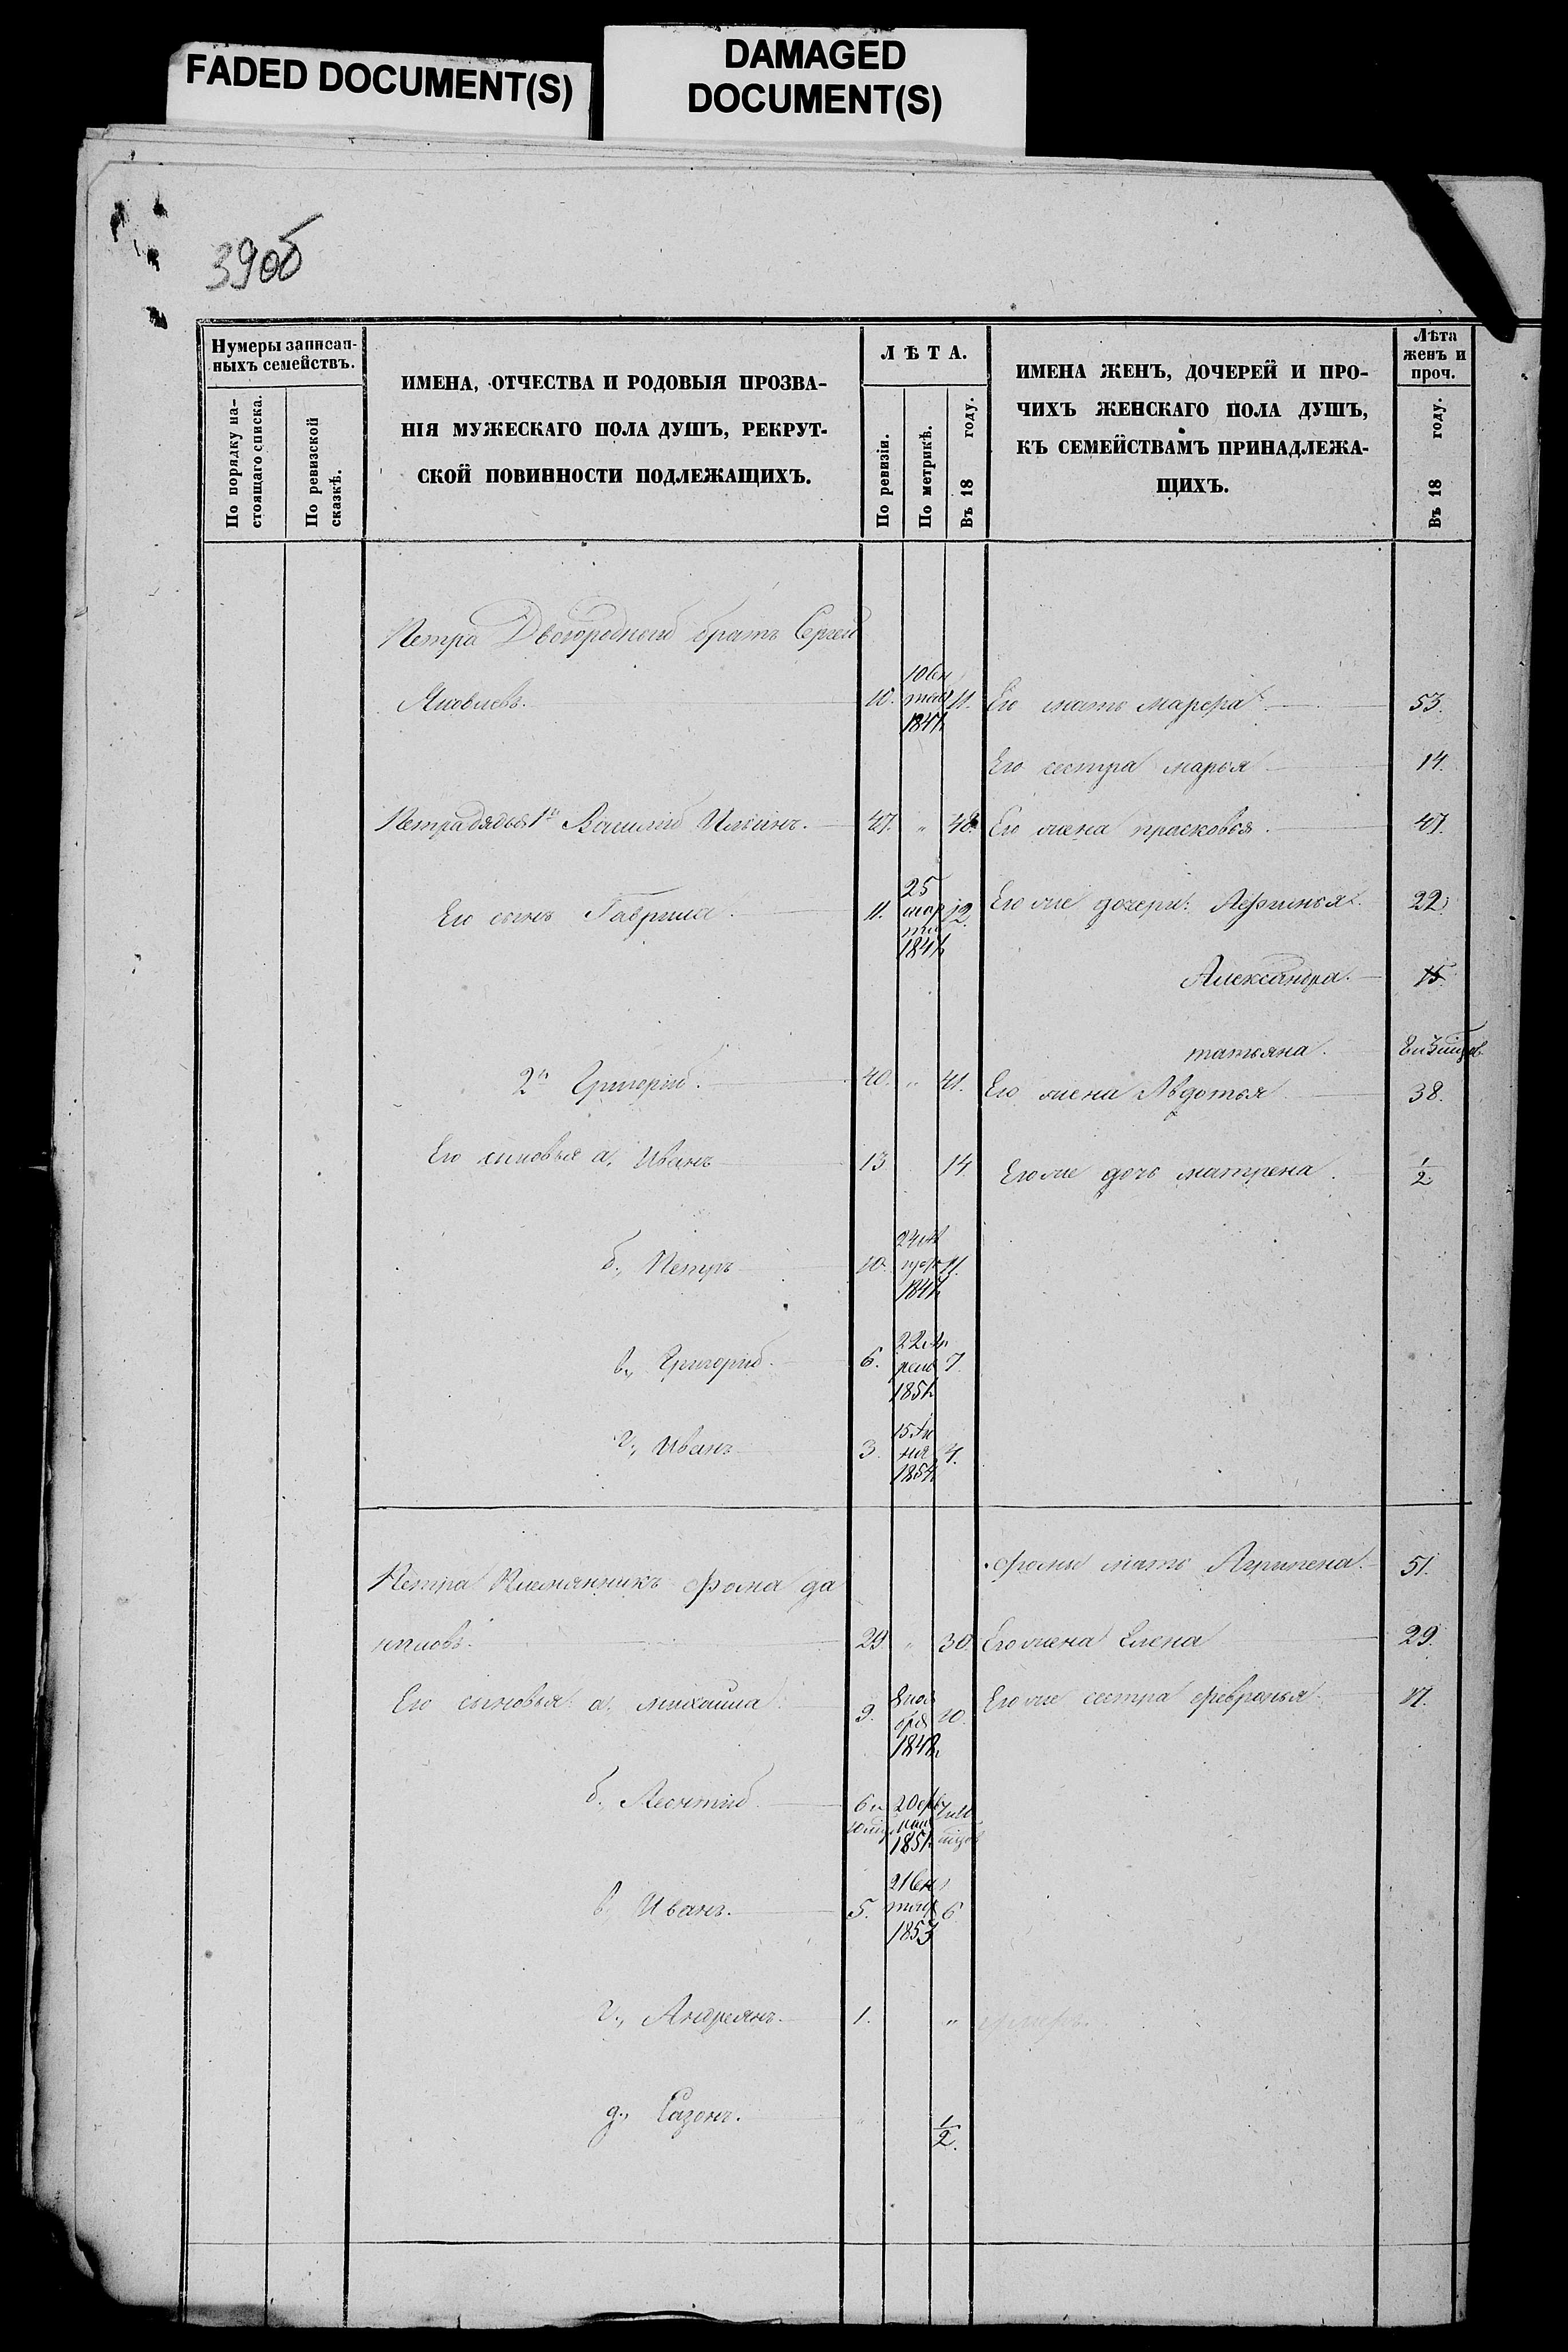 FADED DOCUMENT(S)
DAMAGED
DOCUMENT(S)
39об
Нумеры записан-
ныхъ семействъ.
По порядку на-
стоящаго списка.
По ревизской
сказкѣ.
ИМЕНА, ОТЧЕСТВА И РОДОВЫЯ ПРОЗВА-
НІЯ МУЖЕСКАГО ПОЛА ДУШЪ, РЕКРУТ-
СКОЙ ПОВИННОСТИ ПОДЛЕЖАЩИХЪ.
ЛѢТА.
По ревизіи.
По метрикѣ.
Въ 18 году.
ИМЕНА ЖЕНЪ, ДОЧЕРЕЙ И ПРО-
ЧИХЪ ЖЕНСКАГО ПОЛА ДУШЪ,
КЪ СЕМЕЙСТВАМЪ ПРИНАДЛЕЖА-
ЩИХЪ.
Лѣта
женъ и
проч.
Въ 18 году.
Петра Двоюродной братъ Сергей
Яковлевъ. 10. 11. Его мать марфа 53.
Его сестра марья 14.
Петра дядья 1й Василій Ильинъ. 47. " 48. Его жена прасковья. 47.
Его сынъ Гаврила. 11. 25 мар та 12. Его же дочери: Афимья 22
Александра. 15
татьяна.
2й Григорій. 40. " 41. Его жена Авдотья 38.
Его сыновья а, Иванъ 13 14 Его же дочь матрена. 1/2
б., Петръ 10. 11.
в., Григорій. 6. 22 Ап реля 7.
г., Иванъ 3. 4.
Фомы мать Агрипена. 51.
Петра Племянникъ Фома да
ниловъ. 29 " 30. Его жена Елена 29.
Его сыновья: а. михайла 9. 10. Его же сестра февронья 17.
б. Леонтій
в. Иванъ. 5. 6
г., Андреянъ. 1. " умеръ.
д., Сазонъ. 1/2.